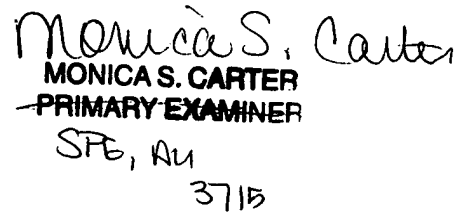 Monica S. Carter
MONICA S. CARTER
PRIMARY EXAMINER
SPE, AU
3715